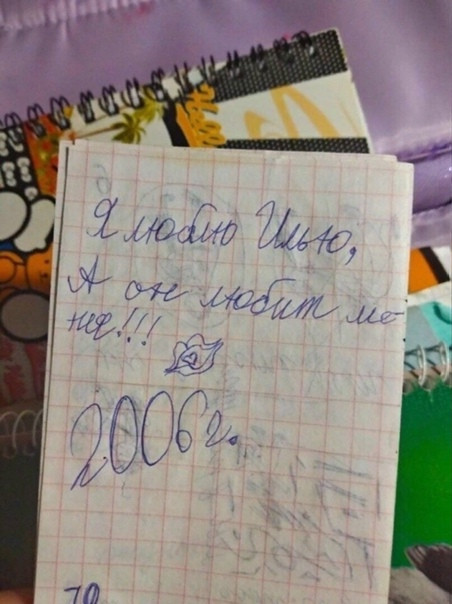 Я люблю Илью,
А он любит ме-
ня!!!
2006г.